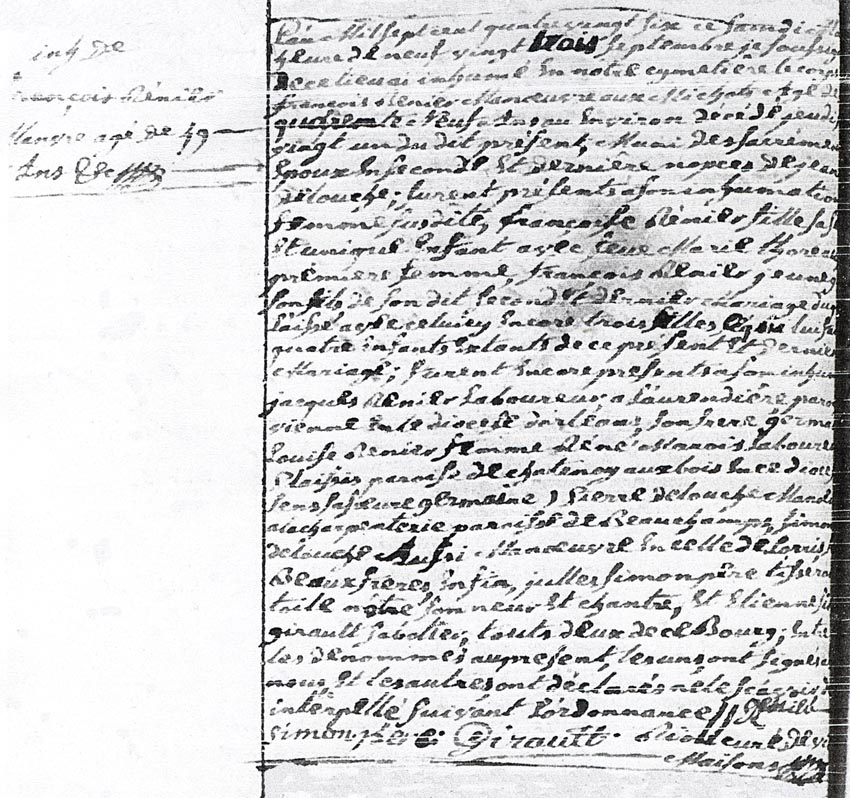 inh de
françois Rénier
Manvre agé de 49
Ans &c
L'an Mil sept cent quatre vingt six ce samdi
heure de neuf vingt trois septembre je soussi
de ce lieu ai inhumé En notre cymetière le corps
françois Renier Manœuvre aux Michats Agé de
quarente Neuf Ans ou Environ decédé jeudi
vingt un du dit présent, Muni des sacrémen
Epoux En seconde Et dernière nopces de jean
Delouche; furent présents a son inhumation
femme susdite, françoise Rénier fille
Et unique Enfant avec feue Marie thoreau
première femme, françois Renier jeune
son fils de son dit second Et dernier Mariage
laissé avec celuicy Encore trois filles
quatre Enfants Extants de ce présent Et Dernier
Mariage; furent Encore presents a son inhum
jacques Renier Laboureur a Laurendière paroi
vienne En le diocese d'orleans, son frere germa
Louise Renier femme Réné Marois Laboureu
Plaisis paroisse de chatenoy aux bois En ce dioce
sens sa sœure germaine, Pierre delouche Manœ
a la charpenterie paroisse de Beauchamps, simon
delouche Aussi Manœuvre En celle de Lorris
Beaux freres, Enfin, julles simon père tissera
toile nôtre sonneur Et chantre, Et Etienne
girault sabotier, touts deux de ce Bourg; Entre
les dénommés au present, les uns ont signés
nous, Et les autres ont déclarés ne le sçavoir
interpellé suivant L'ordonnance
simon père Girault
Maisons